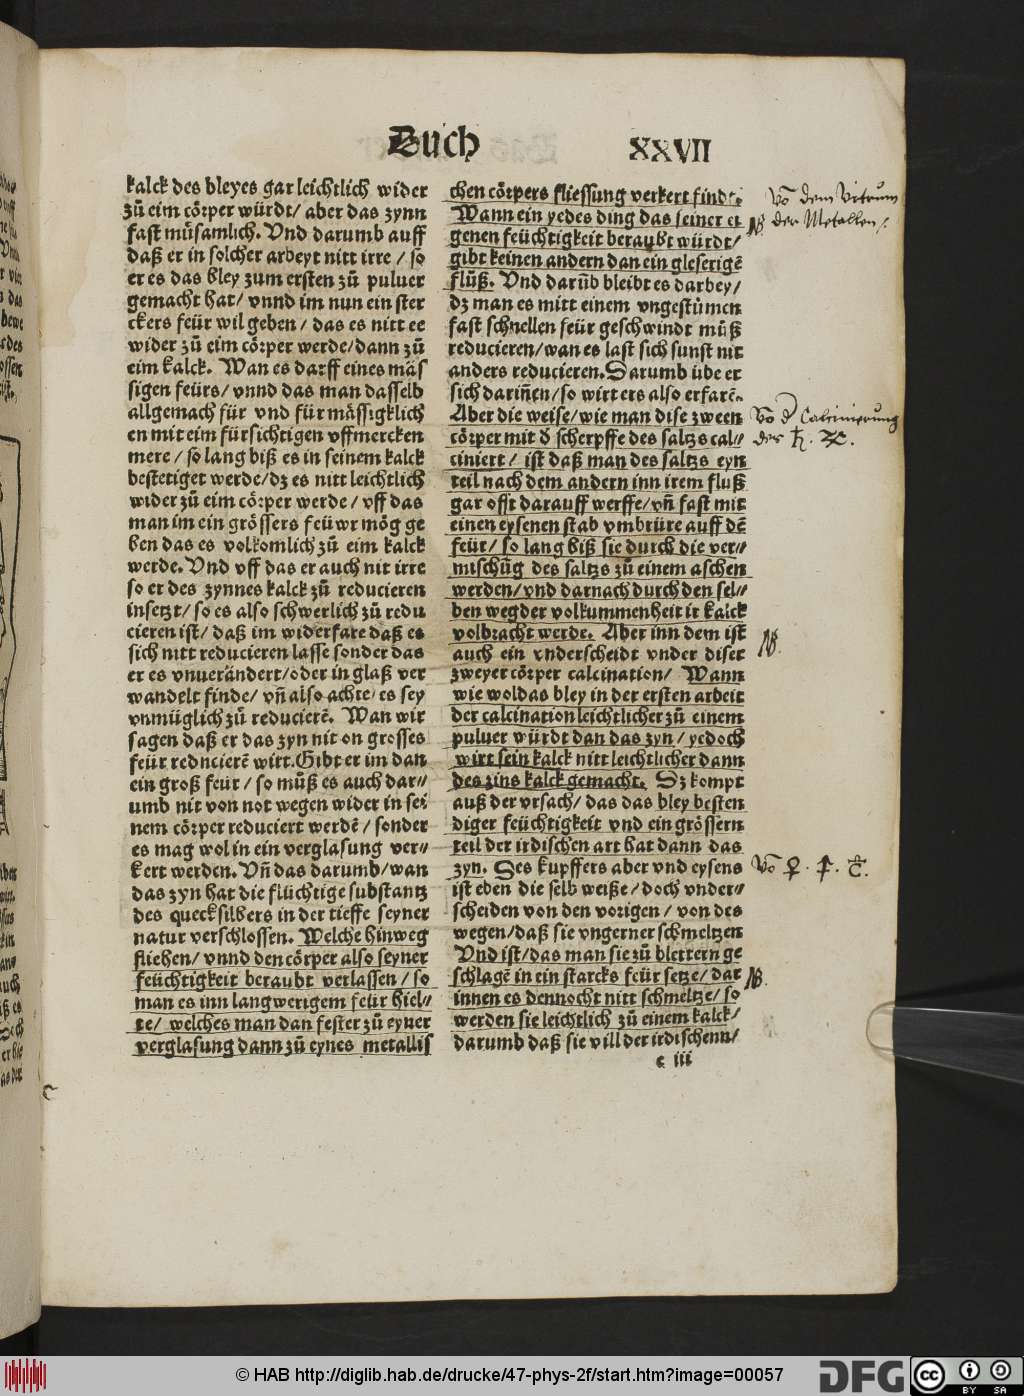 Buch XXVII
kalck des bleyes gar leichtlich wider
zů eim cörper würdt/ aber das zynn
fast müsamlich. Vnd darumb auff
daß er in solcher arbeyt nitt irre / so
er es das bley zum ersten zů puluer
gemacht hat/ vnnd im nun ein ster
ckers feür wil geben / das es nitt ee
wider zů eim cörper werde/dann zů
eim kalck. Wan es darff eines mäs
sigen feürs/ vnnd das man dasselb
allgemach für vnd für mässigklich
en mit eim fürsichtigen vffmercken
mere / so lang biß es in seinem kalck
bestetiget werde/dz es nitt leichtlich
wider zů eim cörper werde / vff das
man im ein grössers feüwr mög ge
ben das es volkomlich zů eim kalck
werde. Vnd vff das er auch nit irre
so er des zynnes kalck zů reducieren
insetzt/ so es also schwerlich zů redu
cieren ist/ daß im widerfare daß es
sich nitt reducieren lasse sonder das
er es vnuerändert/oder in glaß ver
wandelt finde/ vñ also achte/ es sey
vnmüglich zů reducierē. Wan wir
sagen daß er das zyn nit on grosses
feür reducierē wirt. Gibt er im dan
ein groß feür / so můß es auch dar⸗
umb nit von not wegen wider in sei
nem cörper reduciert werdē / sonder
es mag wol in ein verglasung ver⸗
kert werden. Vñ das darumb/wan
das zyn hat die flüchtige substantz
des quecksilbers in der tieffe seyner
natur verschlossen. Welche hinweg
fliehen/ vnnd den cörper also seyner
feüchtigkeit beraubt verlassen / so
man es inn langwerigem feür hiel⸗
te/ welches man dan fester zů eyner
verglasung dann zů eynes metallis
chen cörpers fliessung verkert findt.
Wann ein yedes ding das seiner ei
genen feüchtigkeit beraubt würdt/
gibt keinen andern dan ein gleserigē
flůß. Vnd darũb bleibt es darbey/
dz man es mitt einem vngestůmen
fast schnellen feür geschwindt můß
reducieren/wan es last sich sunst nit
anders reducieren. Darumb übe er
sich dariñen/so wirt ers also erfarē.
Aber die weise/wie man dise zween
cörper mit d̓ scherpffe des saltzs cal⸗
ciniert / ist daß man des saltzs eyn
teil nach dem andern inn irem fluß
gar offt darauff werffe/ vñ fast mit
einen eysenen stab vmbrüre auff dē
feür/ so lang biß sie durch die ver⸗
mischũg des saltzs zů einem aschen
werden/vnd darnach durch den sel⸗
ben weg der volkummenheit ir kalck
volbracht werde. Aber inn dem ist
auch ein vnderscheidt vnder diser
zweyer cörper calcination/ Wann
wie wol das bley in der ersten arbeit
der calcination leichtlicher zů einem
puluer würdt dan das zyn / yedoch
wirt sein kalck nitt leichtlicher dann
des zins kalck gemacht. Dz kompt
auß der vrsach/ das das bley besten
diger feüchtigkeit vnd ein grössern
teil der irdischen art hat dann das
zyn. Des kupffers aber vnd eysens
ist eben die selb weiße/ doch vnder⸗
scheiden von den vorigen / von des
wegen/daß sie vngerner schmeltzen
Vnd ist/das man sie zů blettern ge
schlagē in ein starcks feür setze/ dar
innen es dennocht nitt schmeltze/ so
werden sie leichtlich zů einem kalck/
darumb daß sie vill der irdischenn/
c iii
Võ dem Vitrum
der Metallen/.
NB.
Võ d̓ Calcinierung
der ♄. ♃.
NB.
Võ ♀.
NB.
© HAB http://diglib.hab.de/drucke/47-phys-2f/start.htm?image=00057
DFG
cc BY SA